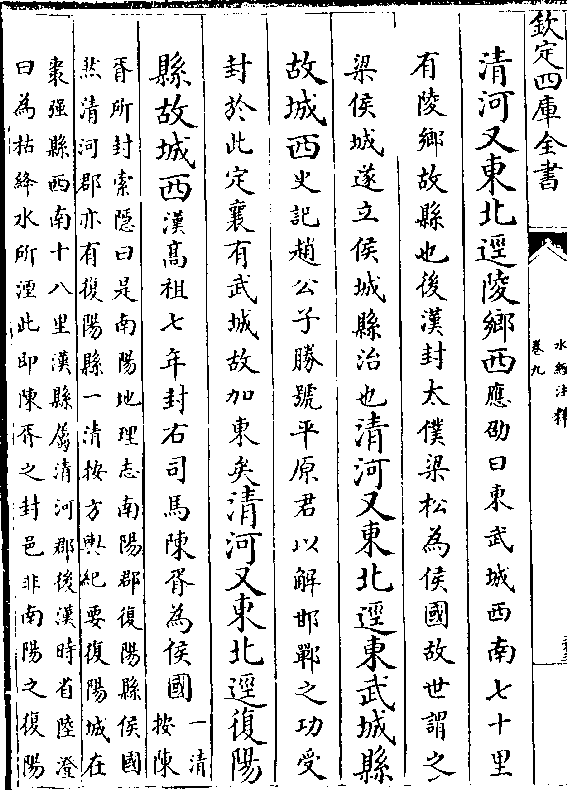 欽定四庫全書
水經注釋
卷九
清河又東北逕陵鄉西應劭曰東武城西南七十里
有陵鄉故縣也後漢封太僕梁松為侯國故世謂之
梁侯城遂立侯城縣治也清河又東北逕東武城縣
故城西史記趙公子勝號平原君以解邯鄲之功受
封於此定襄有武城故加東矣清河又東北逕復陽
縣故城西漢高祖七年封右司馬陳胥為侯國一清
按陳
胥所封索隱曰是南陽地理志南陽郡復陽縣侯國
然清河郡亦有復陽縣一清按方輿紀要復陽城在
棗强縣西南十八里漢縣屬清河郡後漢時省陸澄
曰為枯絳水所湮此即陳胥之封邑非南陽之復陽